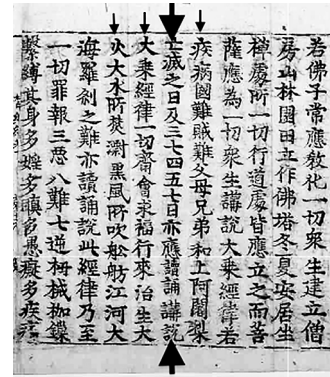 若佛子常應教化一切衆生建立僧
房山林園田立作佛塔冬夏安居坐
禪處所一切行道處皆應立之而菩
薩應為一切衆生講說大乘經律若
疾病國難賊難父母兄弟和上阿闍梨
亡滅之日及三七四五七日亦應讀誦講說
大乘經律一切齋會求福行來治生大
火大水所焚漂黒風所吹舩舫江河大
海羅刹之難亦讀誦說此經律乃至
一切罪報三惡八難七逆杻械枷鏁
繫縛其身多婬多瞋多愚癡多疾病